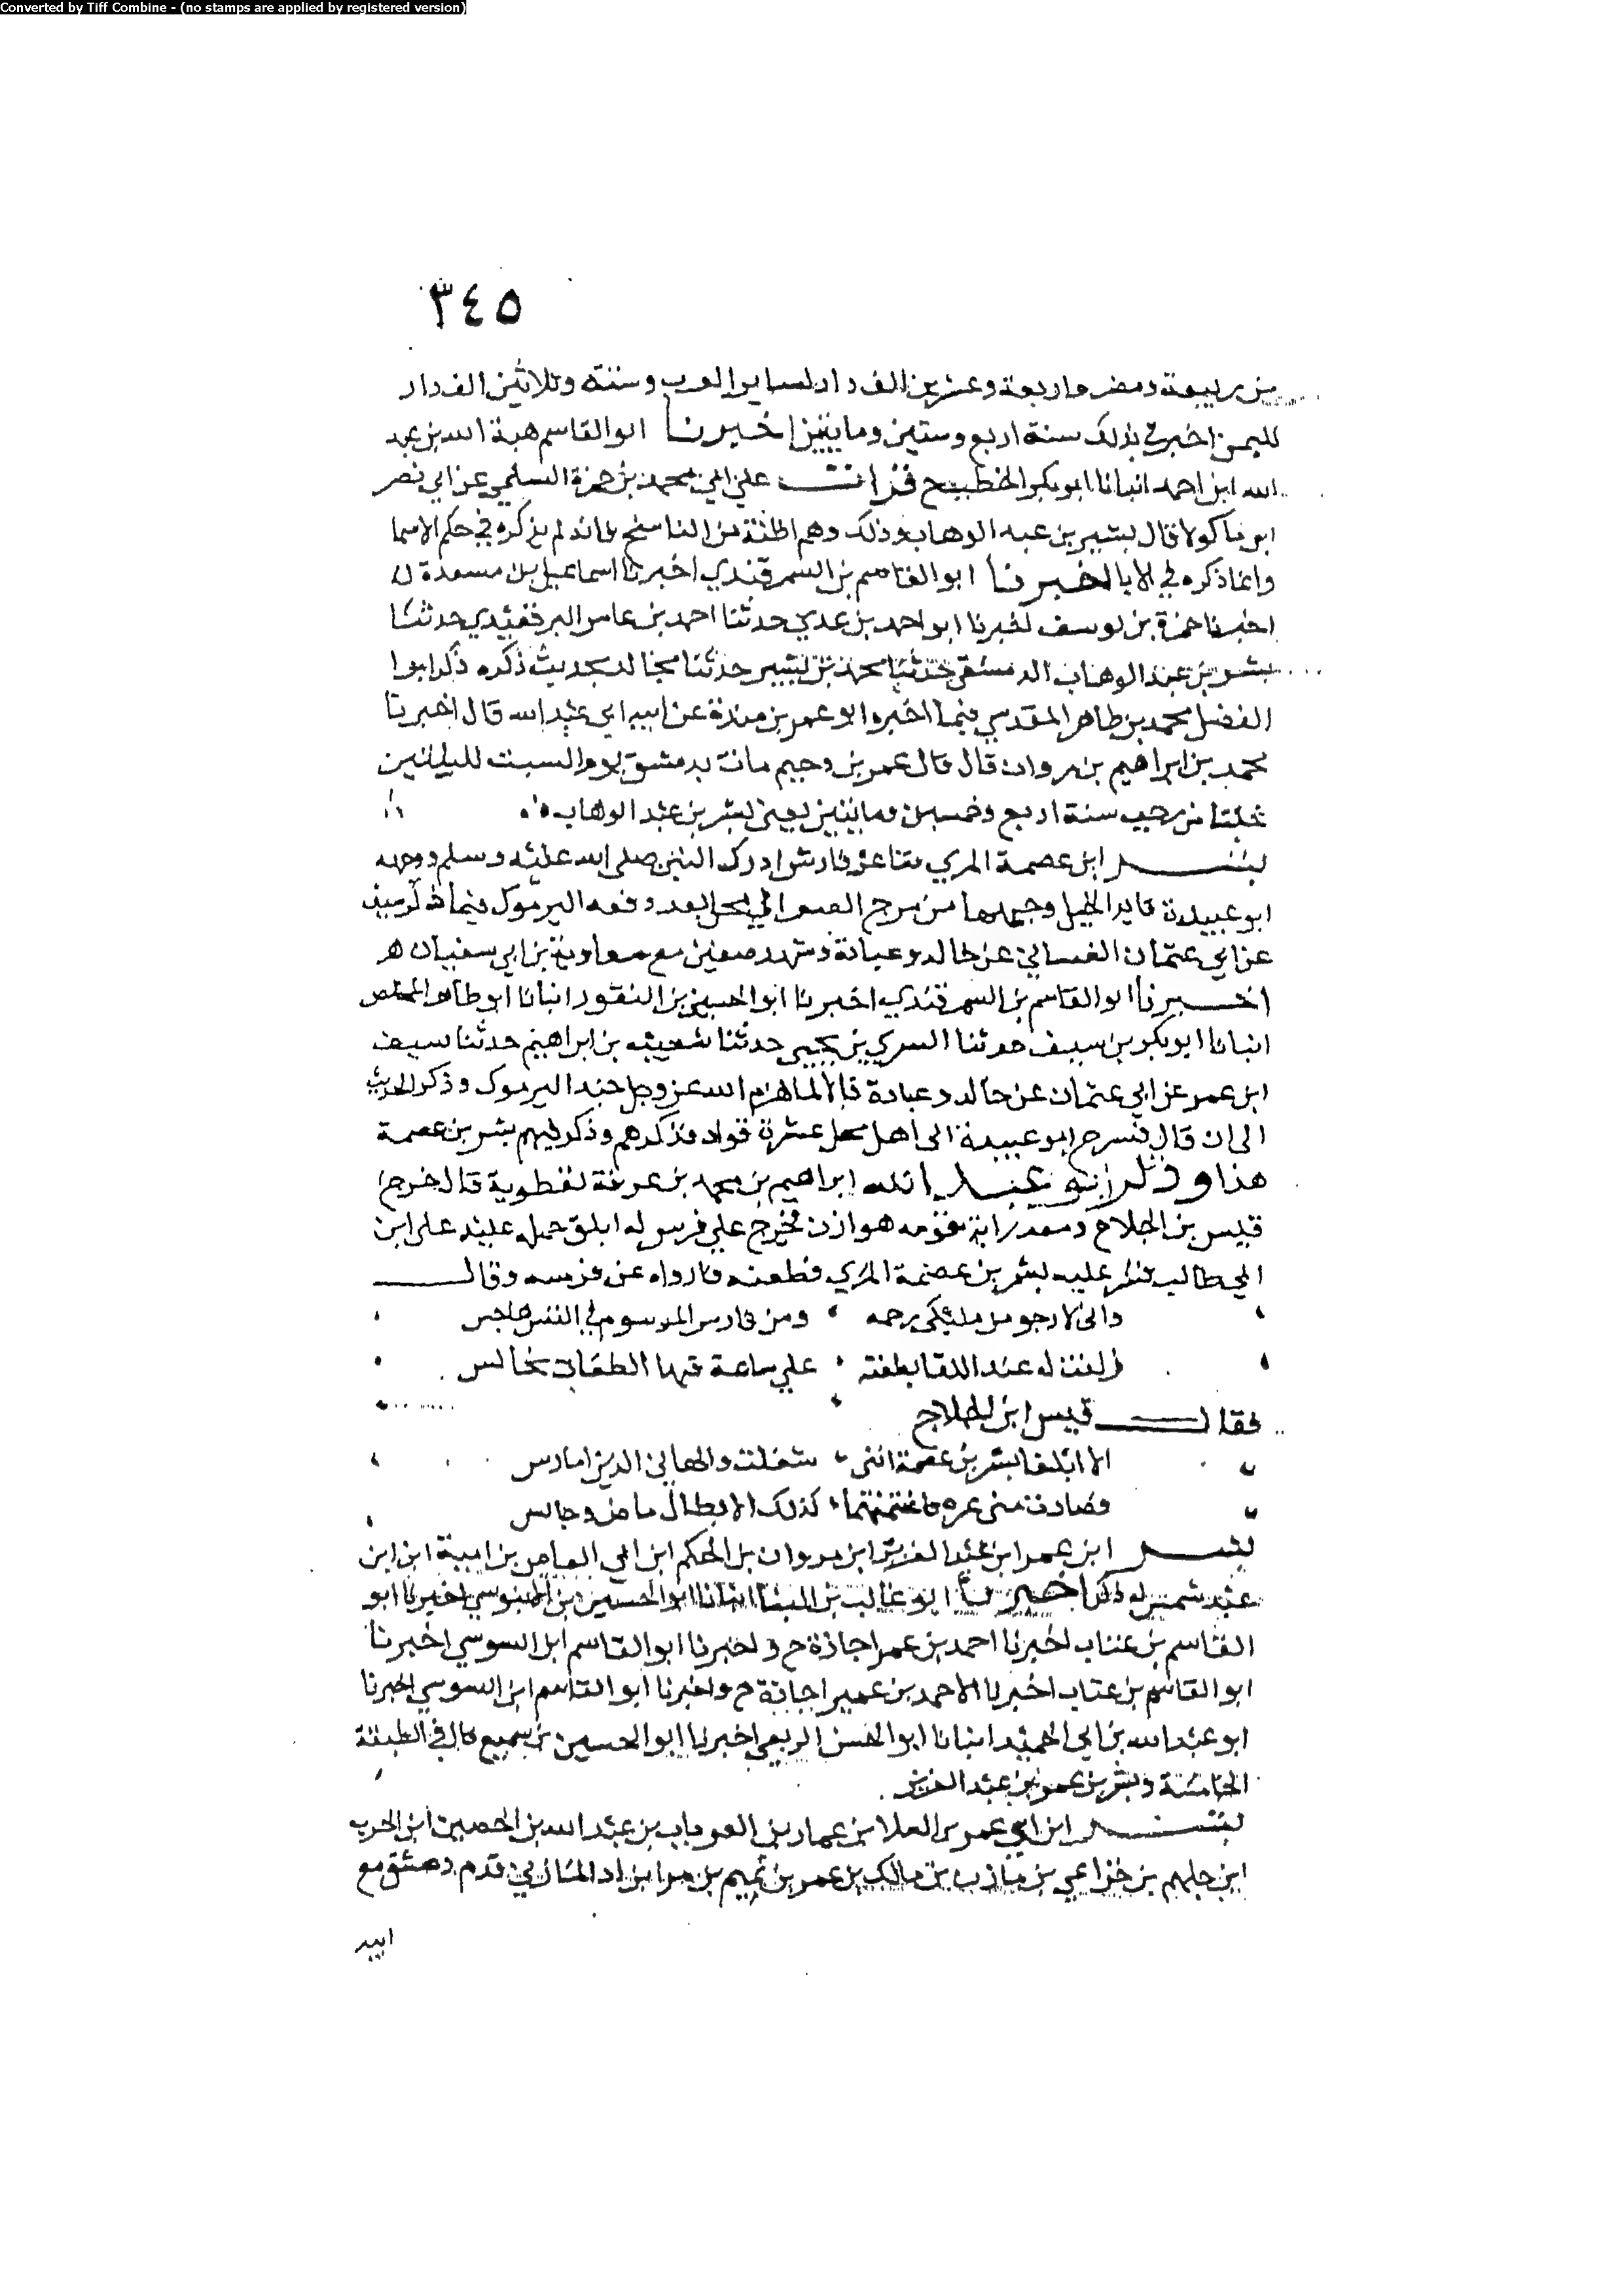 Converted by Tiff Combine - (no stamps are applied by registered version)
٣٤٥
من ربيعة ومضر واربعة وعشرين الف دار لساير العرب وستة وثلاثين الف دار
لليمن اخبرني بذلك سنة اربع وستين ومايتين اخبرنا ابو القاسم هبة الله بن عبد
الله ابن احمد انبانا ابو بكر الخطيب ح قرات علي ابي محمد بن حمزة السلمي عن ابي نصر
ابو ماكولا قال بشير بن عبد الوهاب وذلك وهم اظنه من الناسخ فانه لم يذكره في حكم الاسما
وانما ذكره في الابا اخبرنا ابو القاسم بن السمرقندي اخبرنا اسماعيل بن مسعدة
اخبرنا حمزة بن يوسف اخبرنا ابو احمد بن عدي حدثنا احمد بن عامر البرقعيدي حدثنا
بشر بن عبد الوهاب الدمشقي حدثنا محمد بن بشير حدثنا مجالد بحديث ذكره ذكر ابوا
الفضل محمد بن طاهر المقدسي فيما اخبر وابو عمر بن مندة عن ابيه ابي عبد الله قال اخبرنا
محمد بن ابراهيم بن مروان قال قال عمر بن دحيم مات بدمشق يوم السبت لليلتين
خلتا من رجب سنة اربع وخمسين ومايتين يعني بشر بن عبد الوهاب
بشر ابن عصمة المري شاعر فارس ادرك النبي صلى الله عليه وسلم ووجهه
ابو عبيدة قايد الخيل وجهها من مرج الصفر الي فحل بعد وقعه اليرموك فيما ذكر سيف
عن ابي عثمان الغساني عن خالد وعبادة وشهد صفين مع معاوية بن ابي سفيان
اخبرنا ابو القاسم بن السمرقندي اخبرنا ابو الحسين بن النقور انبانا ابو طاهر المخلص
انبانا ابو بكر بن سيف حدثنا السري بن يحيى حدثنا شعيب بن ابراهيم حدثنا سيف
ابن عمر عن ابي عثمان عن خالد وعبادة قالا لما هزم الله عز وجل جند اليرموك وذكر الحديث
الى ان قال فسرح ابو عبيدة الى اهل فحل عشرة قواد فذكرهم وذكر فيهم بشر بن عصمة
هذا وذكر ابو عبد الله ابراهيم بن محمد بن عرفة نفطوية قال خرج
قيس بن الجلاح ومعه راية قومه هوازن فخرج علي فرس له ابلق حمل عليه على ابن
ابي طالب فشد عليه بشر بن عصمة المري فطعنه فارداه عن فرسه وقال
واني لارجو من مليكي رحمه ومن فارس الموسوم في النفس هاجس
دلفت له عند اللقا بطعنة علي ساعة فيها الطعان تخالس
فقال قيس ابن الجلاح
الا ابلغا بشر بن عصمة انني شغلت والهاني الذين امارس
فصادفت مني غره فاغتنمتها كذلك الابطال ماض وجالس
بشر ابن عمر ابن عبد العزيز ابن مروان بن الحكم ابن ابي العاص بن امية ابن ابن
عبد شمس له ذكر اخبرنا ابو غالب بن البنا انبانا ابو الحسين بن الابنوسي اخبرنا ابو
القاسم بن عتاب اخبرنا احمد بن عمر اجازة ح و اخبرنا ابو القاسم ابن السوسي اخبرنا
ابو القاسم بن عتاب اخبرنا الاحمد بن عمير اجازة ح واخبرنا ابو القاسم ابن السوسي اخبرنا
ابو عبد الله بن ابي الحميد انبانا ابو الحسن الربعي اخبرنا ابو الحسين بن سميع قال في الطبقة
الخامسة وبشر بن عمر بن عبد العزيز
بشر ابن ابي عمر بن العلا بن عمار بن العريان بن عبد الله بن الحصين ابن الحرب
ابن جلهم بن خزاعي بن مازن بن مالك بن عمر بن تميم بن مر ابن اد المازني قدم دمشق مع
ابيه